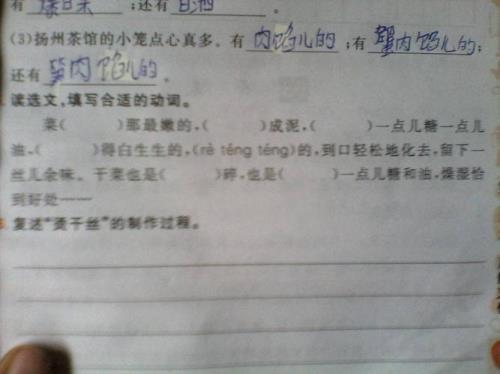 有 ;还有 。
(3)扬州茶馆的小笼点心真多。有 肉馅儿的 ;有 蟹肉馅儿的;
还有 笋肉馅儿的 。
读选文,填写合适的动词。
菜( )那最嫩的,( )成泥,( )一点儿糖一点儿
油,( )得白生生的,(rè téng téng)的,到口轻松地化去,留下一
丝儿余味。干菜也是( )碎,也是( )一点儿糖和油,燥湿恰
到好处——
复述“烫干丝”的制作过程。